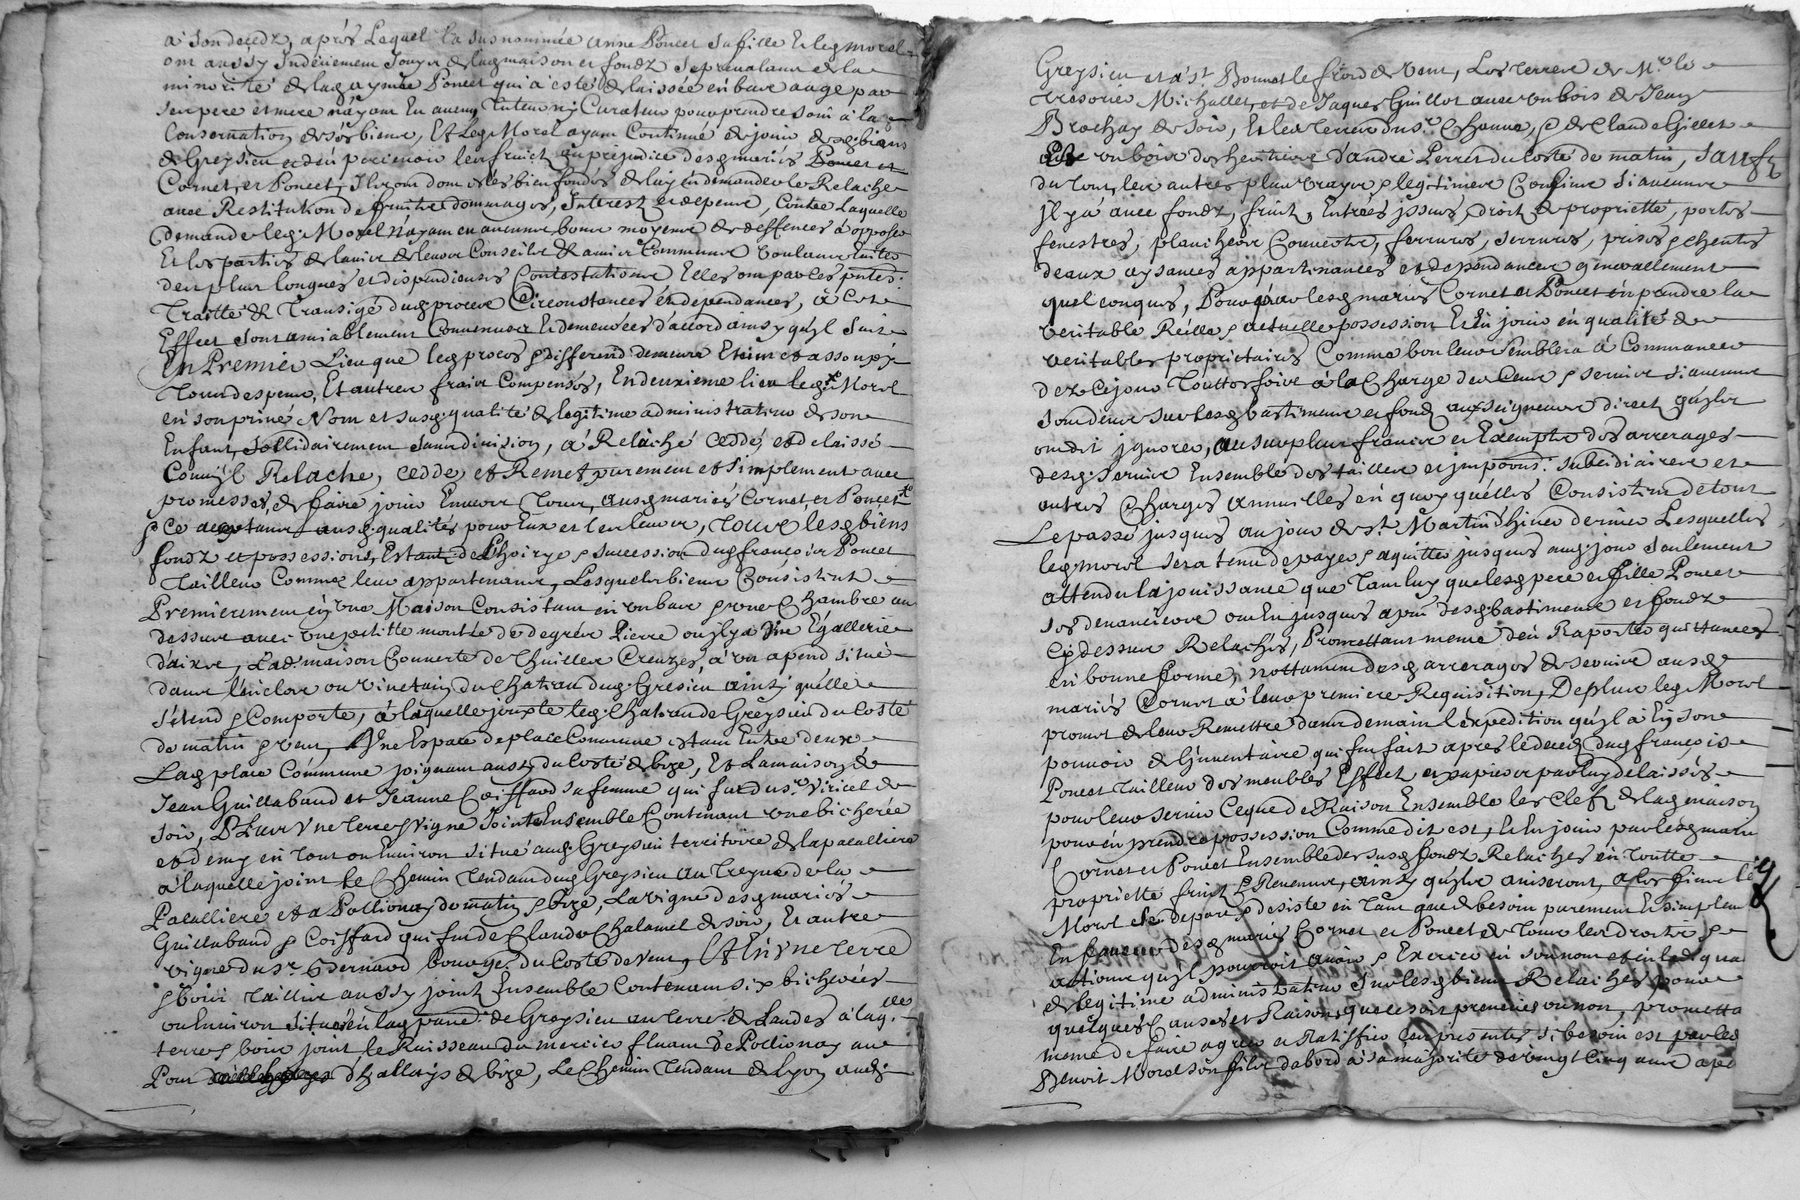 a son decedz, après Lequel la susnommée anne Poncet sa fille Et led morel
ont aussy Indeuement Jouyr de lad maison et fondz se prevalant de la
minorité de lad aymée Poncet qui a esté delaissée en bas aage par
ses pere et mere n'ayant Eu aucun Tuteur ny Curateur pour prendre soin à la
Conservation de ses biens, Et led Morel ayant Continué de jouir desd biens
de Greysieu et d'en percevoir les fruictz au préjudice desd mariés Poncet et
Cornet, et Poncet, Ilz sont donc très bien fondés de luy en demander le Relache
avec Restitution de fruitz dommages, Interest et depens, Contre Laquelle
demande led Morel n'ayant eu aucuns bons moyens de deffences à opposer
Et les parties de l'avis de leurs Conseils et amis Communs voulant Eviter
de plus longues et dispendieuses Contestations Elles ont par ces pntes
Traitté et Transigé dud proces Circonstances et dependances, à cet
Effect sont amiablement Convenues Et demeurées d'accord ainsy qu'yl suit
En Premier Lieu que led proces & differend demeure Eteint et assoupy
Tous despens, Et autres frais Compensés, En deuxieme lieu led Sr Morel
en son privé Nom et susd qualité de legitime administrateur de son
Enfant, sollidairement sans division, à Relaché ceddé et delaissé
Comme yl Relache, cedde, et Remet purement et simplement avec
promesses de faire jouir Envers Tous, ausd mariés Cornet, et Poncet
& ce acceptant ausd qualités pour Eux et les leurs, Tous lesd biens
fondz et possessions, Estant de l'hoirye & succession dud françois Poncet
Tailleur Comme leur appartenant, Lesquels biens Consistent
Premierement en Une Maison Consistant en un bas & une Chambre au
dessus avec une petitte montée de degrés Pierre ou yl y a Une Egallerie
d'aixe, Lad maison Couverte de Thuilles Creuzes, à un apend situé
dans l'enclos ou vinctain du Chateau dud Gresieu ainsy qu'elle
s'étend & Comporte, à laquelle jouxte led Chateau de Greysieu du Costé
de matin & vent, Une Espace de place Commune estant Entre deux
Lad place Commune joignant aussy du Costé de bize, Et La maison de
Jean Guillabaud et Jeanne Coiffard sa femme qui fut du sr Viricel de
soir, Plus Une terre & Vigne Joints Ensemble Contenant une bicherée
et demy en Tout ou Environ situé aud Greysieu territoire de la pacalliere
à laquelle joint le Chemin Tendant dud Greysieu au Treyne de la
Pacalliere et a Pollionay de matin & bize, La vigne desd mariés
Guillabaud & Coiffard qui fut de Claude Chalamel de soir, Et autre
vigne du sr Bernard Bourges du Costé de vent, Et En Une Terre
& bois Taillis aussy joint Ensemble Contenant six bicherées
ou Environ Situé en lad parre de Greysieu au terre de Landes à laqlle
terre & bois joint le Ruisseau du mercier fluant de Pollionay au
Pont d'Hallays de bize, Le Chemin Tendant de Lyon aud
Greysieu et à st Bonnet le froid de vent, Les Terres de Mr le
Tresorier Michallet, et de Jaques Guillot avec un bois de Jean
Brochay de soir, Et les Terres du sr Chanu, & de Claude Gillet
un bois des heritiers d'andré Perret du Costé de matin, saufz
du Tout les autres plus vrayes & legitimes Confins si aucuns
yl y a avec fondz, fruits, Entrées yssues, droit de proprietté, portes
fenestres, planchers Couvertz, ferrures, serrures, prises & cheutes
deaux aysances appartenances et dependances generallement
quelconques, Pour par lesd mariés Cornet et Poncet en prendre la
veritable Reelle & actuelle possession Et En jouir en qualité de
veritables proprietaires Comme bon leur semblera à Commancer
dez ce jour Touttesfois à la Charge des Cens & servis si aucuns
sont deus sur lesd bastiments et fondz aux seigneurs directz qu'yls
ont dit ignorer, au surplus francs et Exempts des arrerages
desd servis Ensemble des tailles et impons subsidiaires et
autres Charges annuelles en quoy qu'elles Consistent de tout
Le passé jusques au jour de st Martin d'hiver dernier Lesquelles
led morel sera tenu de payer & aquitter jusques aud jour seulement
attendu la jouissance que Tant luy que lesd pere et fille Poncet
ses devanciers ont Eu jusques apnt desd bastiments et fondz
cy dessus Relachés, Promettant meme d'en Raporter quittances
en bonne forme, nottamment desd arrerages de servis ausd
mariés Cornet à leur premiere Requisition, De plus led Morel
promet de leur Remettre dans demain l'expedition qu'yl à En son
pouvoir de l'inventaire qui fut fait apres le deced dud françois
Poncet Tailleur des meubles Effect et papiers par luy delaissés
pour leur servir Ce que de Raison Ensemble les Clefz de lad maison
pour en prendre possession Comme dit est, Et En jouir par lesd mariés
Cornet et Poncet Ensemble des susd fondz Relachés en Toutte
proprietté fruitz & Revenus, ainsy qu'yls aviseront, a ces fins led
Morel s'en depart & desiste en Tant que de besoin purement Et simplem
En faveur desd mariés Cornet et Poncet de Tous les droits &
actions qu'yl pourroit avoir & Exercer en son nom et en lad qua
de legitime administrateur sur lesd biens Relachés pour
quelques Causes et Raisons que ce soit prevenus ou non, prometta
meme de faire agreer et Ratiffier les presentes si besoin est par led
Benoit Morel son fils d'abord à sa majorité de vingt Cinq ans a pe